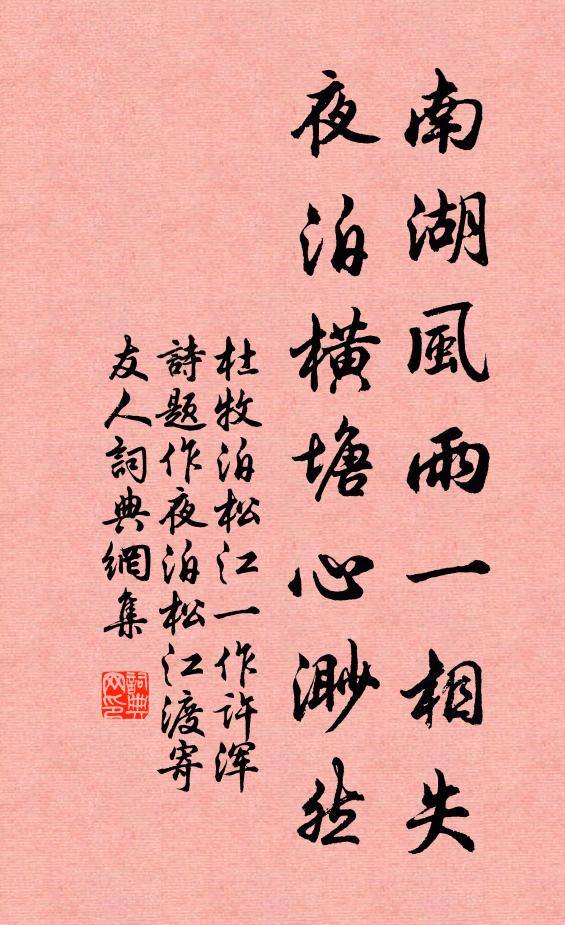 南湖風雨一相失
夜泊橫塘心渺然
杜牧泊松江一作許浑
詩题作夜泊松江渡寄
友人詞典網集
詞典網印